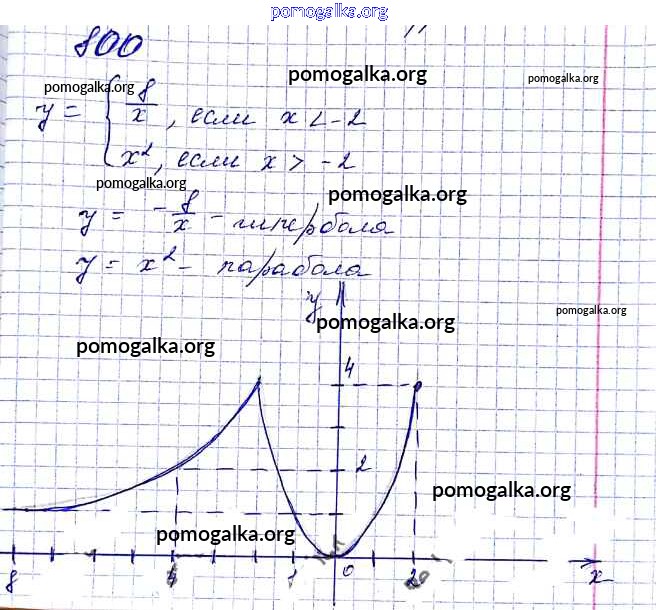 pomogalka.org
800
pomogalka.org
pomogalka.org
pomogalka.org
y = { 8/x, если x < -2
x², если x > -2
pomogalka.org
pomogalka.org
y = -8/x - гипербола
y = x² - парабола
y
pomogalka.org
pomogalka.org
pomogalka.org
4
2
pomogalka.org
pomogalka.org
8 4 1 0 2 x